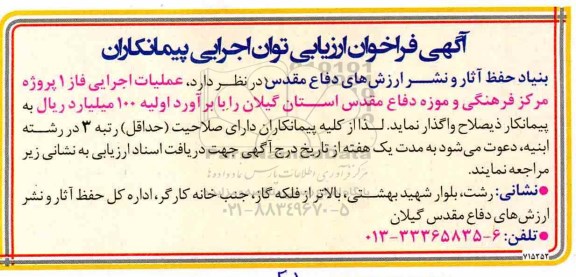 آگهی فراخوان ارزیابی توان اجرایی پیمانکاران
بنیاد حفظ آثار و نشر ارزش‌های دفاع مقدس در نظر دارد، عملیات اجرایی فاز ۱ پروژه
مرکز فرهنگی و موزه دفاع مقدس استان گیلان را با برآورد اولیه ۱۰۰ میلیارد ریال به
پیمانکار ذیصلاح واگذار نماید. لذا از کلیه پیمانکاران دارای صلاحیت (حداقل) رتبه ۳ در رشته
ابنیه، دعوت می‌شود به مدت یک هفته از تاریخ درج آگهی جهت دریافت اسناد ارزیابی به نشانی زیر
مراجعه نمایند.
●نشانی: رشت، بلوار شهید بهشتی، بالاتر از فلکه گاز، جنب خانه کارگر، اداره کل حفظ آثار و نشر
ارزش‌های دفاع مقدس گیلان
۰۲۱-۸۸۳۴۹۶۷۰-۵
●تلفن: ۶-۳۳۳۶۵۸۳۵-۰۱۳
۷۱۵۲۵۲